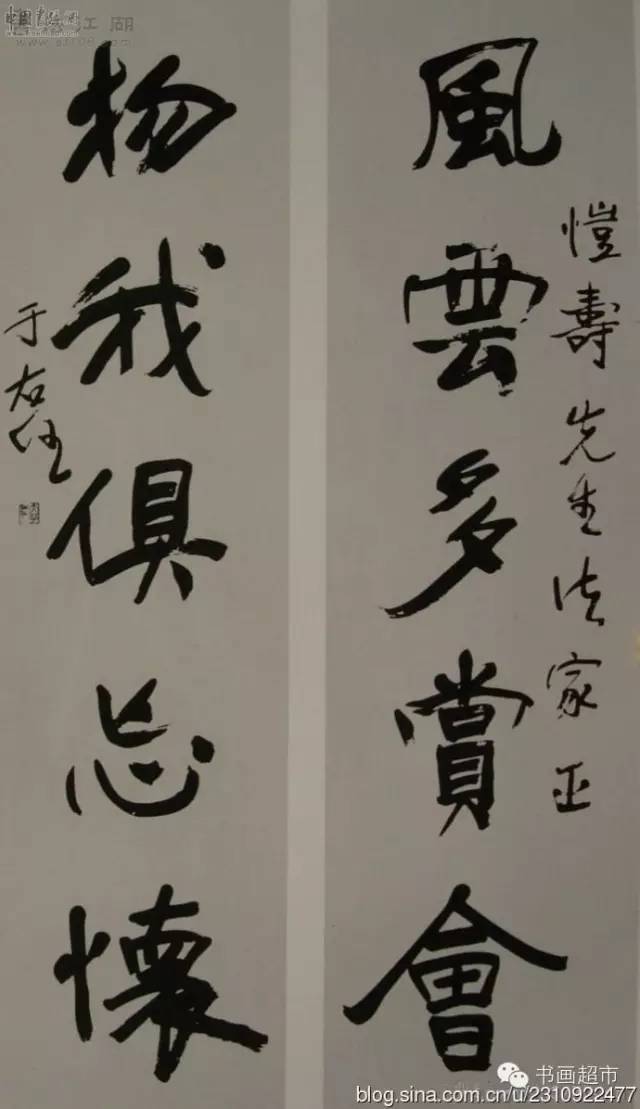 愷壽先生法家正
風雲多賞會
物我俱忘懷
于右任
书画超市
blog.sina.com.cn/u/2310922477